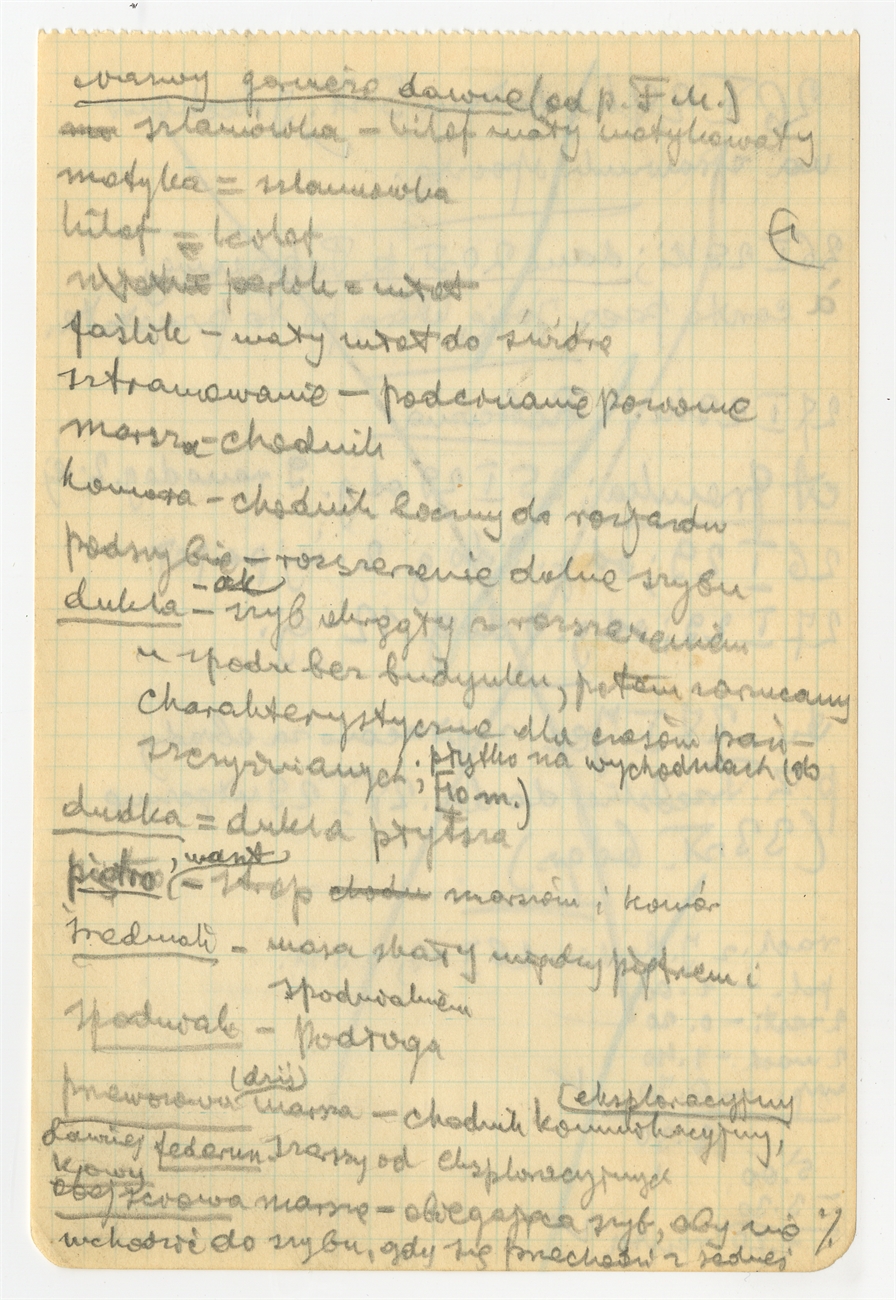 nazwy górnicze dawne (od p. F. M.)
szlamówka – kilof mały motykowaty
motyka = szlamówka
kilof = kolof
perlok = młot
faślik – mały młot do świdra
sztramowanie – podcinanie poziome
marsza – chodnik
komora – chodnik boczny do rozjazdu
podszybie – rozszerzenie dolne szybu
– ak
dukla – szyb okrągły z rozszerzeniem
u spodu bez budynku, potem zarzucany
charakterystyczne dla czasów pań-
szczyźnianych; płytko na wychodniach (ob
10 m.)
dudka = dukla płytsza
piętro, – strop chodn marszów i komór
średniak – masa skały między piętrem i
spodniakiem
spodniak – podłoga
(dziś)
przewozowa marsza – chodnik komunikacyjny,
(eksploracyjny
dawniej federun szerszy od eksploracyjnych
marsza – obiegająca szyb, aby nie
wchodzić do szybu, gdy się przechodzi z jednej